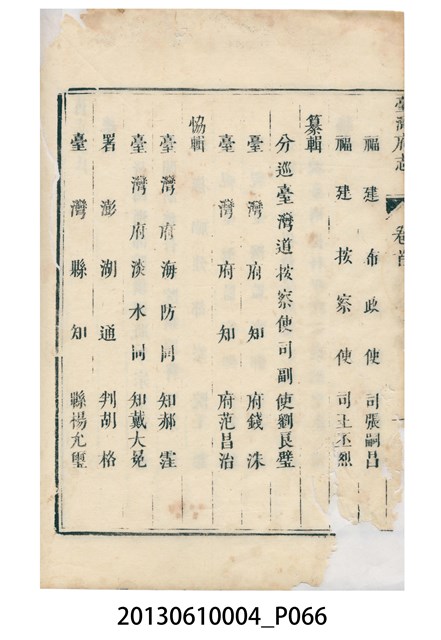 臺灣府志 卷首
福建布政使司張嗣昌
福建按察使司王丕烈
纂輯
分巡臺灣道按察使司副使劉良璧
臺灣府知府錢洙
臺灣府知府范昌治
協輯
臺灣府海防同知郝霪
臺灣府淡水同知戴大冕
署澎湖通判胡格
臺灣縣知縣楊允璽
20130610004_P066